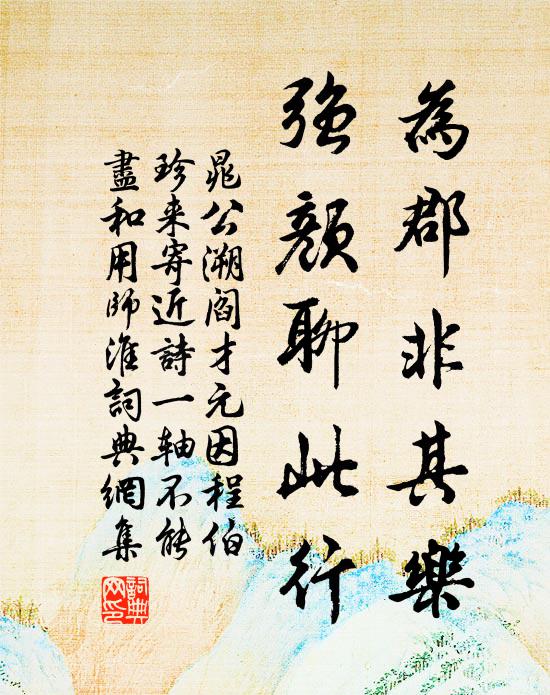 為郡非其樂
強顏聊此行
晁公溯閻才元因程伯
珍来寄近詩一軸不能
盡和用師淮詞典網集
詞典網印